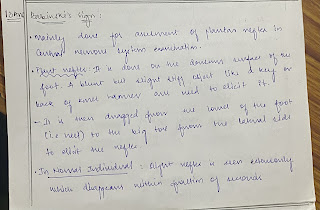 Babinski's sign :
• Mainly done for assessment of plantar reflex in
Central nervous system examination.
• Plant reflex : It is done on the dorsum surface of the
foot. A blunt but slight stiff object like a key or
back of knee hammer are used to elicit it.
- It is then dragged from the lateral of the foot
(i.e heel) to the big toe from the lateral side
to elicit the reflex.
• In Normal Individual : slight reflex is seen
which disappears within fraction of seconds